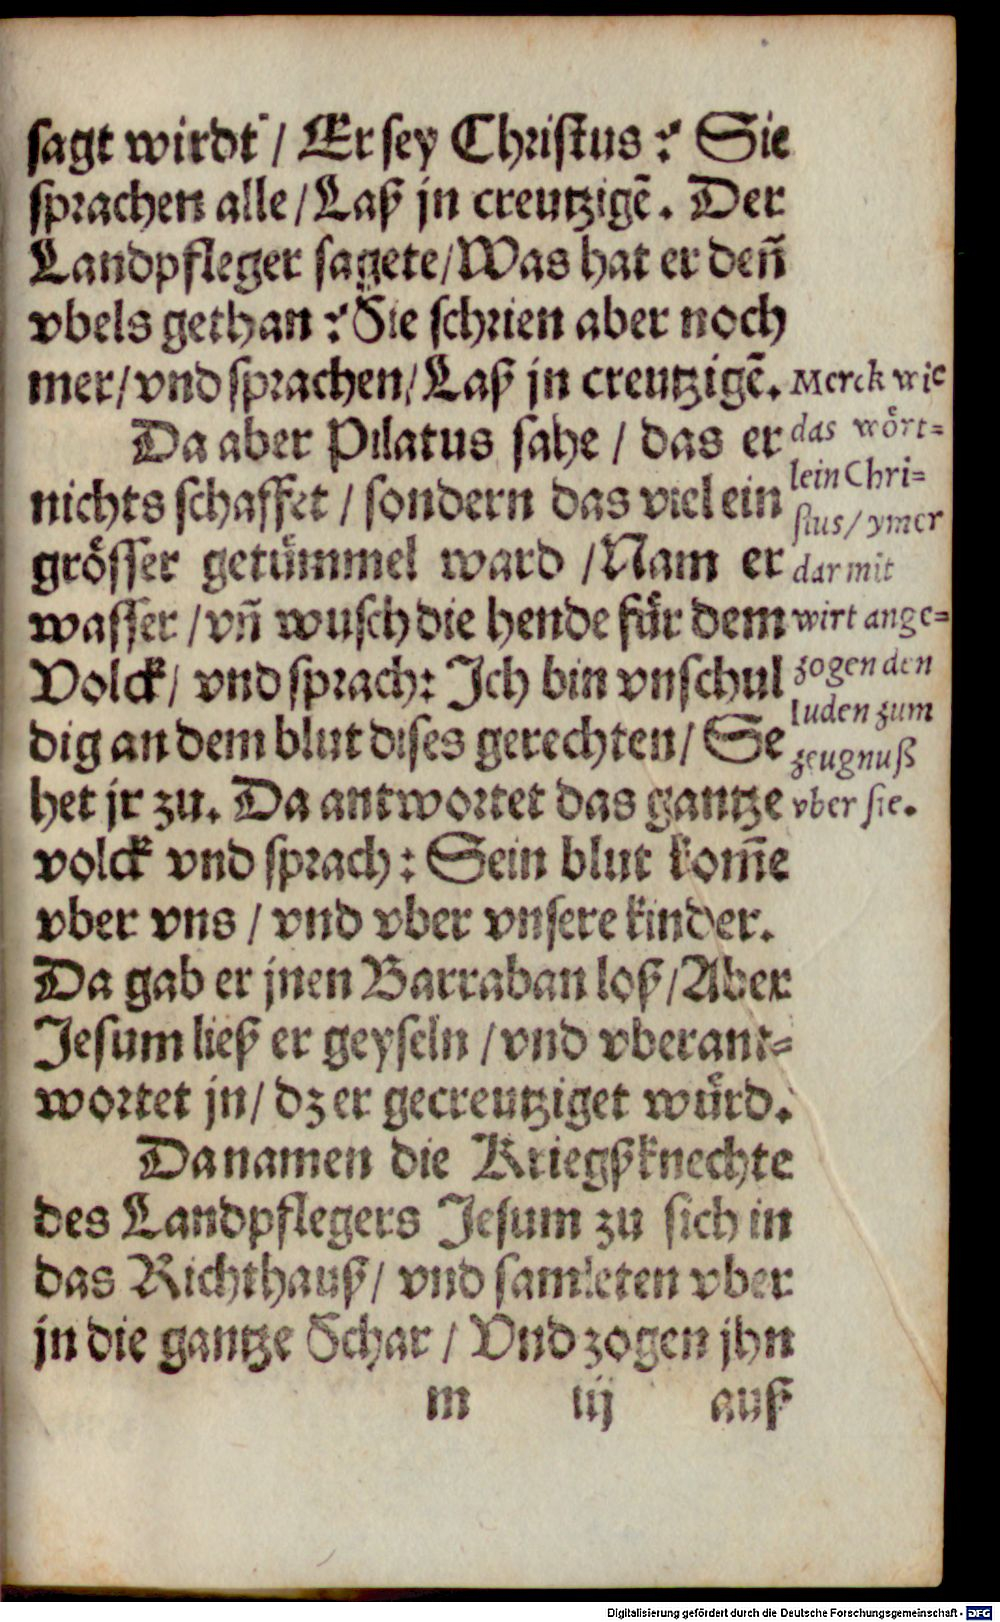 sagt wirdt / Er sey Christus? Sie
sprachen alle / Laß jn creutzigē. Der
Landpfleger sagete / Was hat er deñ
vbels gethan? Sie schrien aber noch
mer / vnd sprachen / Laß jn creutzigē.
Da aber Pilatus sahe / das er
nichts schaffet / sondern das viel ein
grösser getümmel ward / Nam er
wasser / vñ wusch die hende für dem
Volck / vnd sprach: Ich bin vnschul
dig an dem blut dises gerechten / Se
het jr zu. Da antwortet das gantze
volck vnd sprach: Sein blut kom̄e
vber vns / vnd vber vnsere kinder.
Da gab er jnen Barraban loß / Aber
Jesum ließ er geyseln / vnd vberant=
wortet jn / dz er gecreutziget würd.
Da namen die Kriegßknechte
des Landpflegers Jesum zu sich in
das Richthauß / vnd samleten vber
jn die gantze Schar / Vnd zogen jhn
m iij auß
Merck wie
das wört=
lein Chri=
stus / ymer
dar mit
wirt ange=
zogen den
Iuden zum
zeugnuß
vber sie.
Digitalisierung gefördert durch die Deutsche Forschungsgemeinschaft - DFG